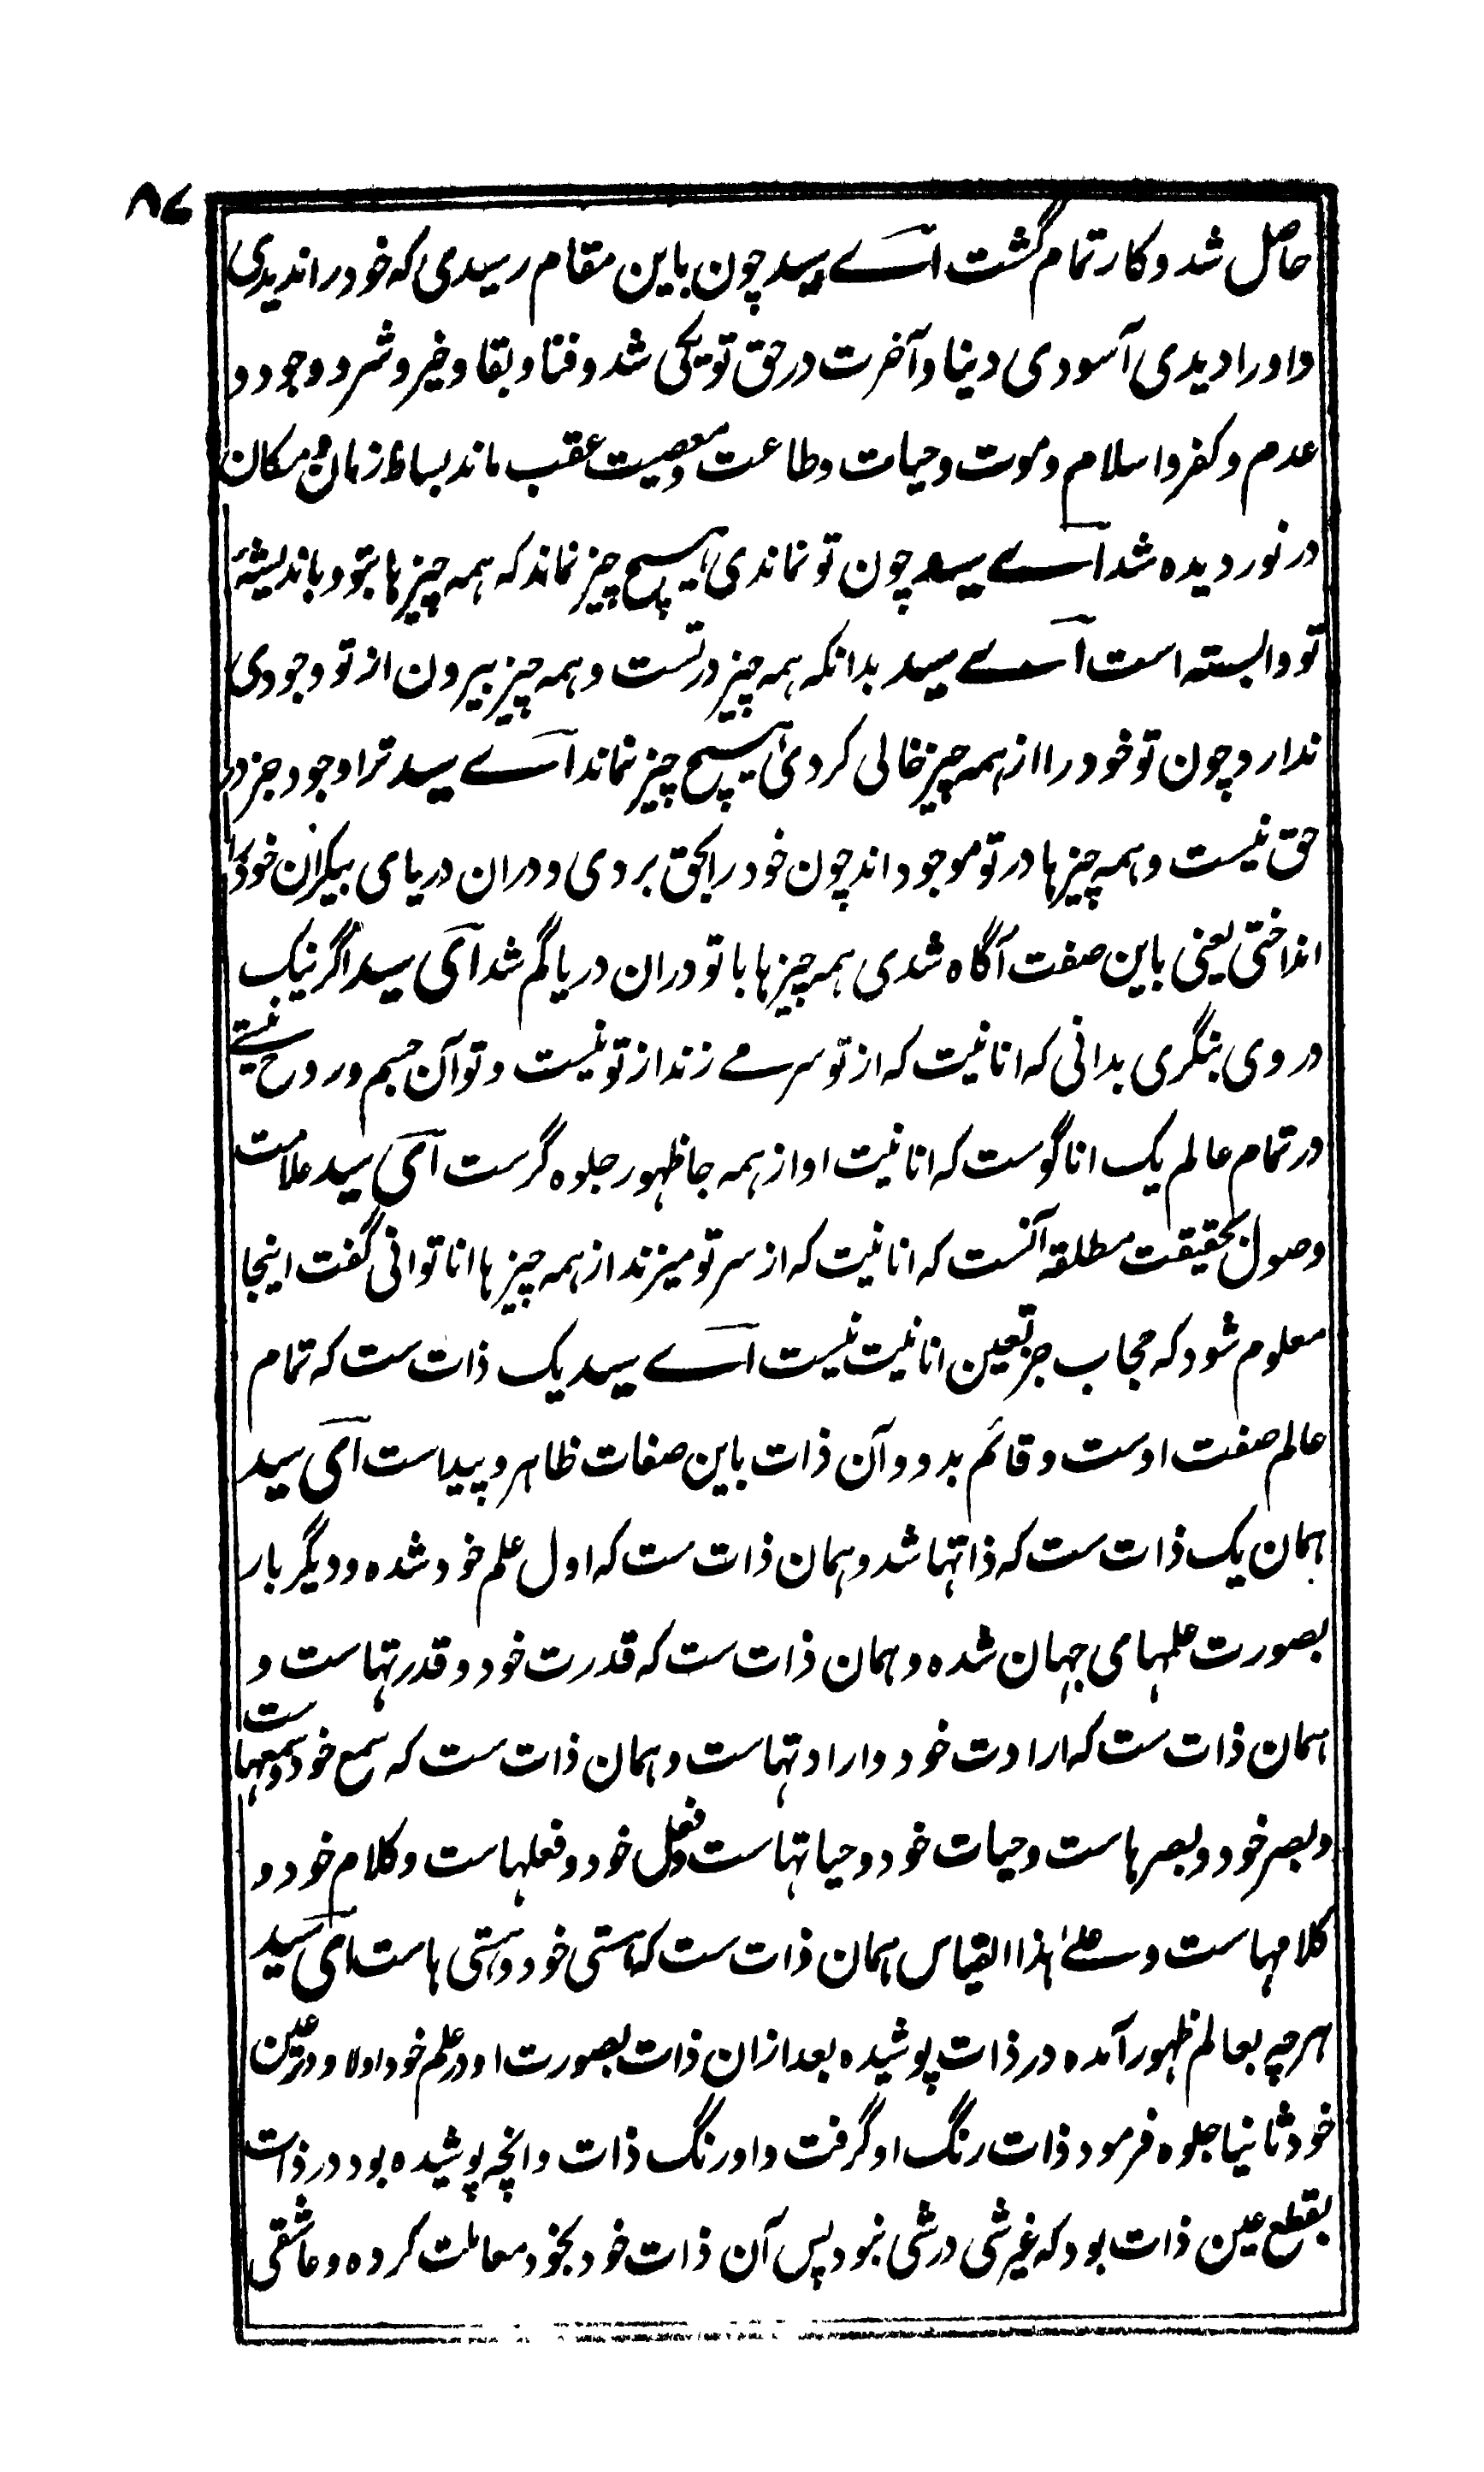 ۸۶
حاصل شد و کار تمام گشت اے سید چون باین مقام رسیدی که خود را ندیدی
و او را دیدی آسودی دنیا و آخرت در حق تو یکی شد و فنا و بقا و خیر و شر و وجود و
عدم و کفر و اسلام و موت و حیات و طاعت و معصیت عقب ماند بساط زمان و مکان
در نوردیده شد اے سید چون تو نماندی هیچ چیز نماند که همه چیزها بتو و باندیشهٔ
تو وابسته است اے سید بدانکه همه چیز در تست و همه چیز بیرون از تو وجودی
ندارد چون تو خود را از همه چیز خالی کردی هیچ چیز نماند اے سید ترا وجود جز در
حق نیست و همه چیزها در تو موجود اند چون خود را بحق بردی و دران دریای بیکران خود را
انداختی یعنی باین صفت آگاه شدی همه چیزها با تو دران دریا گم شد ای سید اگر نیک
در وی بنگری بدانی که انانیت که از تو سر مے زند از تو نیست و تو آن جسم و روح نیستے
در تمام عالم یک انا گوست که انانیت او از همه جا ظهور جلوه گرست ای سید علامت
وصول بحقیقت مطلقه آنست که انانیت که از سر تو میزند از همه چیزها انا توانی گفت اینجا
معلوم شود که حجاب جز تعین انانیت نیست اے سید یک ذات ست که تمام
عالم صفت اوست و قائم بدو و آن ذات باین صفات ظاهر و پیداست ای سید
همان یک ذات ست که ذاتها شد و همان ذات ست که اول علم خود شده و دیگر بار
بصورت علمهای جهان شده و همان ذات ست که قدرت خود و قدرتهاست و
همان ذات ست که ارادت خود و ارادتهاست و همان ذات ست که سمع خود و سمعهاست
و بصر خود و بصرهاست و حیات خود و حیاتهاست و فعل خود و فعلهاست و کلام خود و
کلامهاست و علےٰ هذا القیاس همان ذات ست که هستی خود و هستی هاست ای سید
هرچه بعالم ظهور آمده در ذات پوشیده بعد ازان ذات بصورت او در علم خود اولا و در عین
خود ثانیا جلوه فرمود ذات رنگ او گرفت و او رنگ ذات و انچه پوشیده بود در ذات
بقطع عین ذات بود که غیر شی در شی نبود پس آن ذات خود بخود معاملت کرده و عاشقی